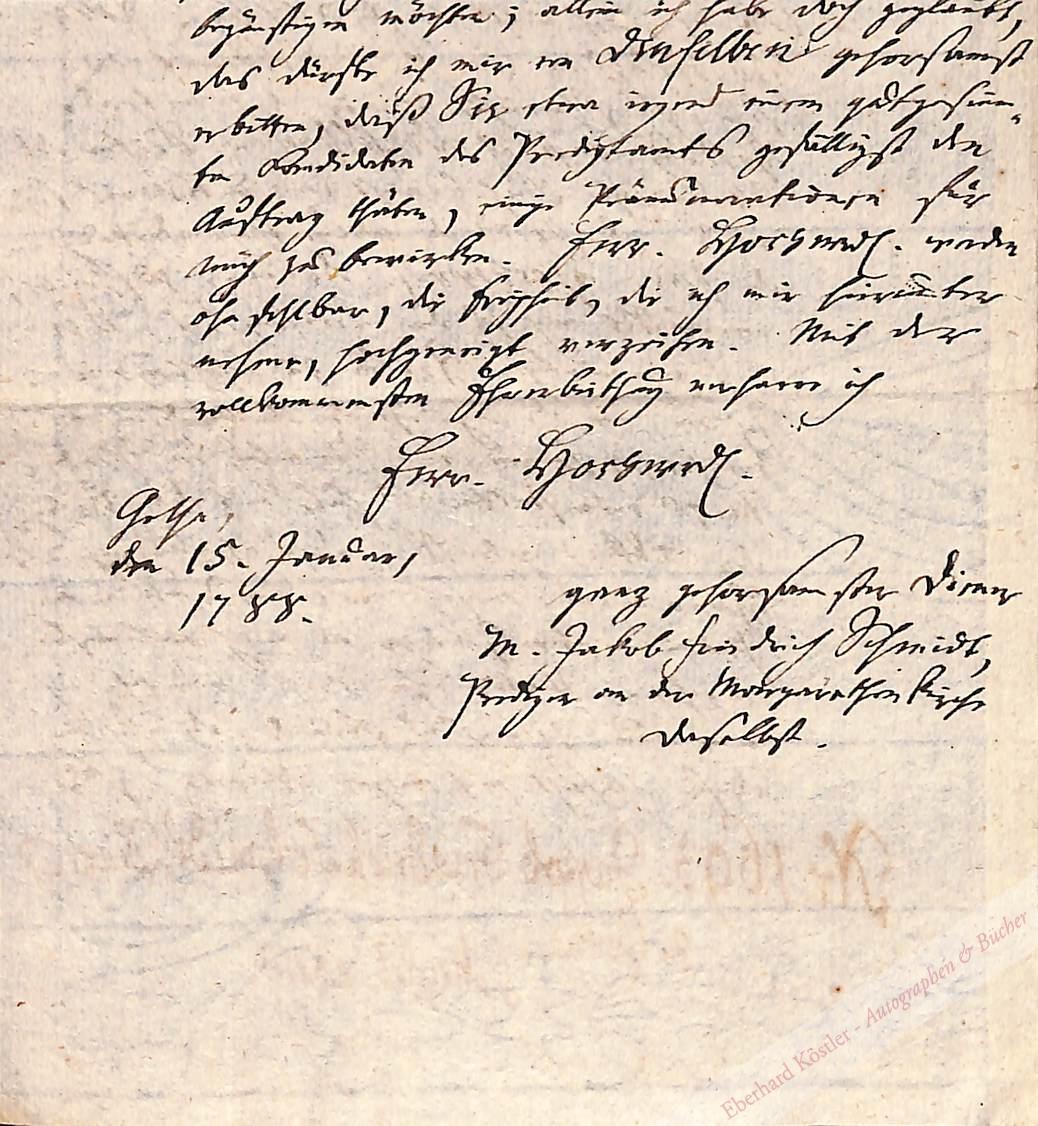 begünstigen möchten; allein ich habe doch geglaubt,
das dürfte ich mir von Denselben gehorsamst
erbitten, daß Sie etwa irgend einem gutgesinn-
ten Kandidaten des Predigtamts gefälligst den
Auftrag thäten, einige Pränumerationen für
mich zu bewirken. Ewr. Hochwrdl. werden
ohnfehlbar, die Freyheit, die ich mir hierunter
nehme, hochgeneigt verzeihen. Mit der
vollkommensten Ehrerbietung verharre ich
Ewr. Hochwrdl.
Gotha,
den 15. Januar,
1788.
ganz gehorsamster Diener
M. Jakob Friedrich Schmidt,
Prediger an der Margarethenkirche
daselbst.
Eberhard Köstler - Autographen & Bücher